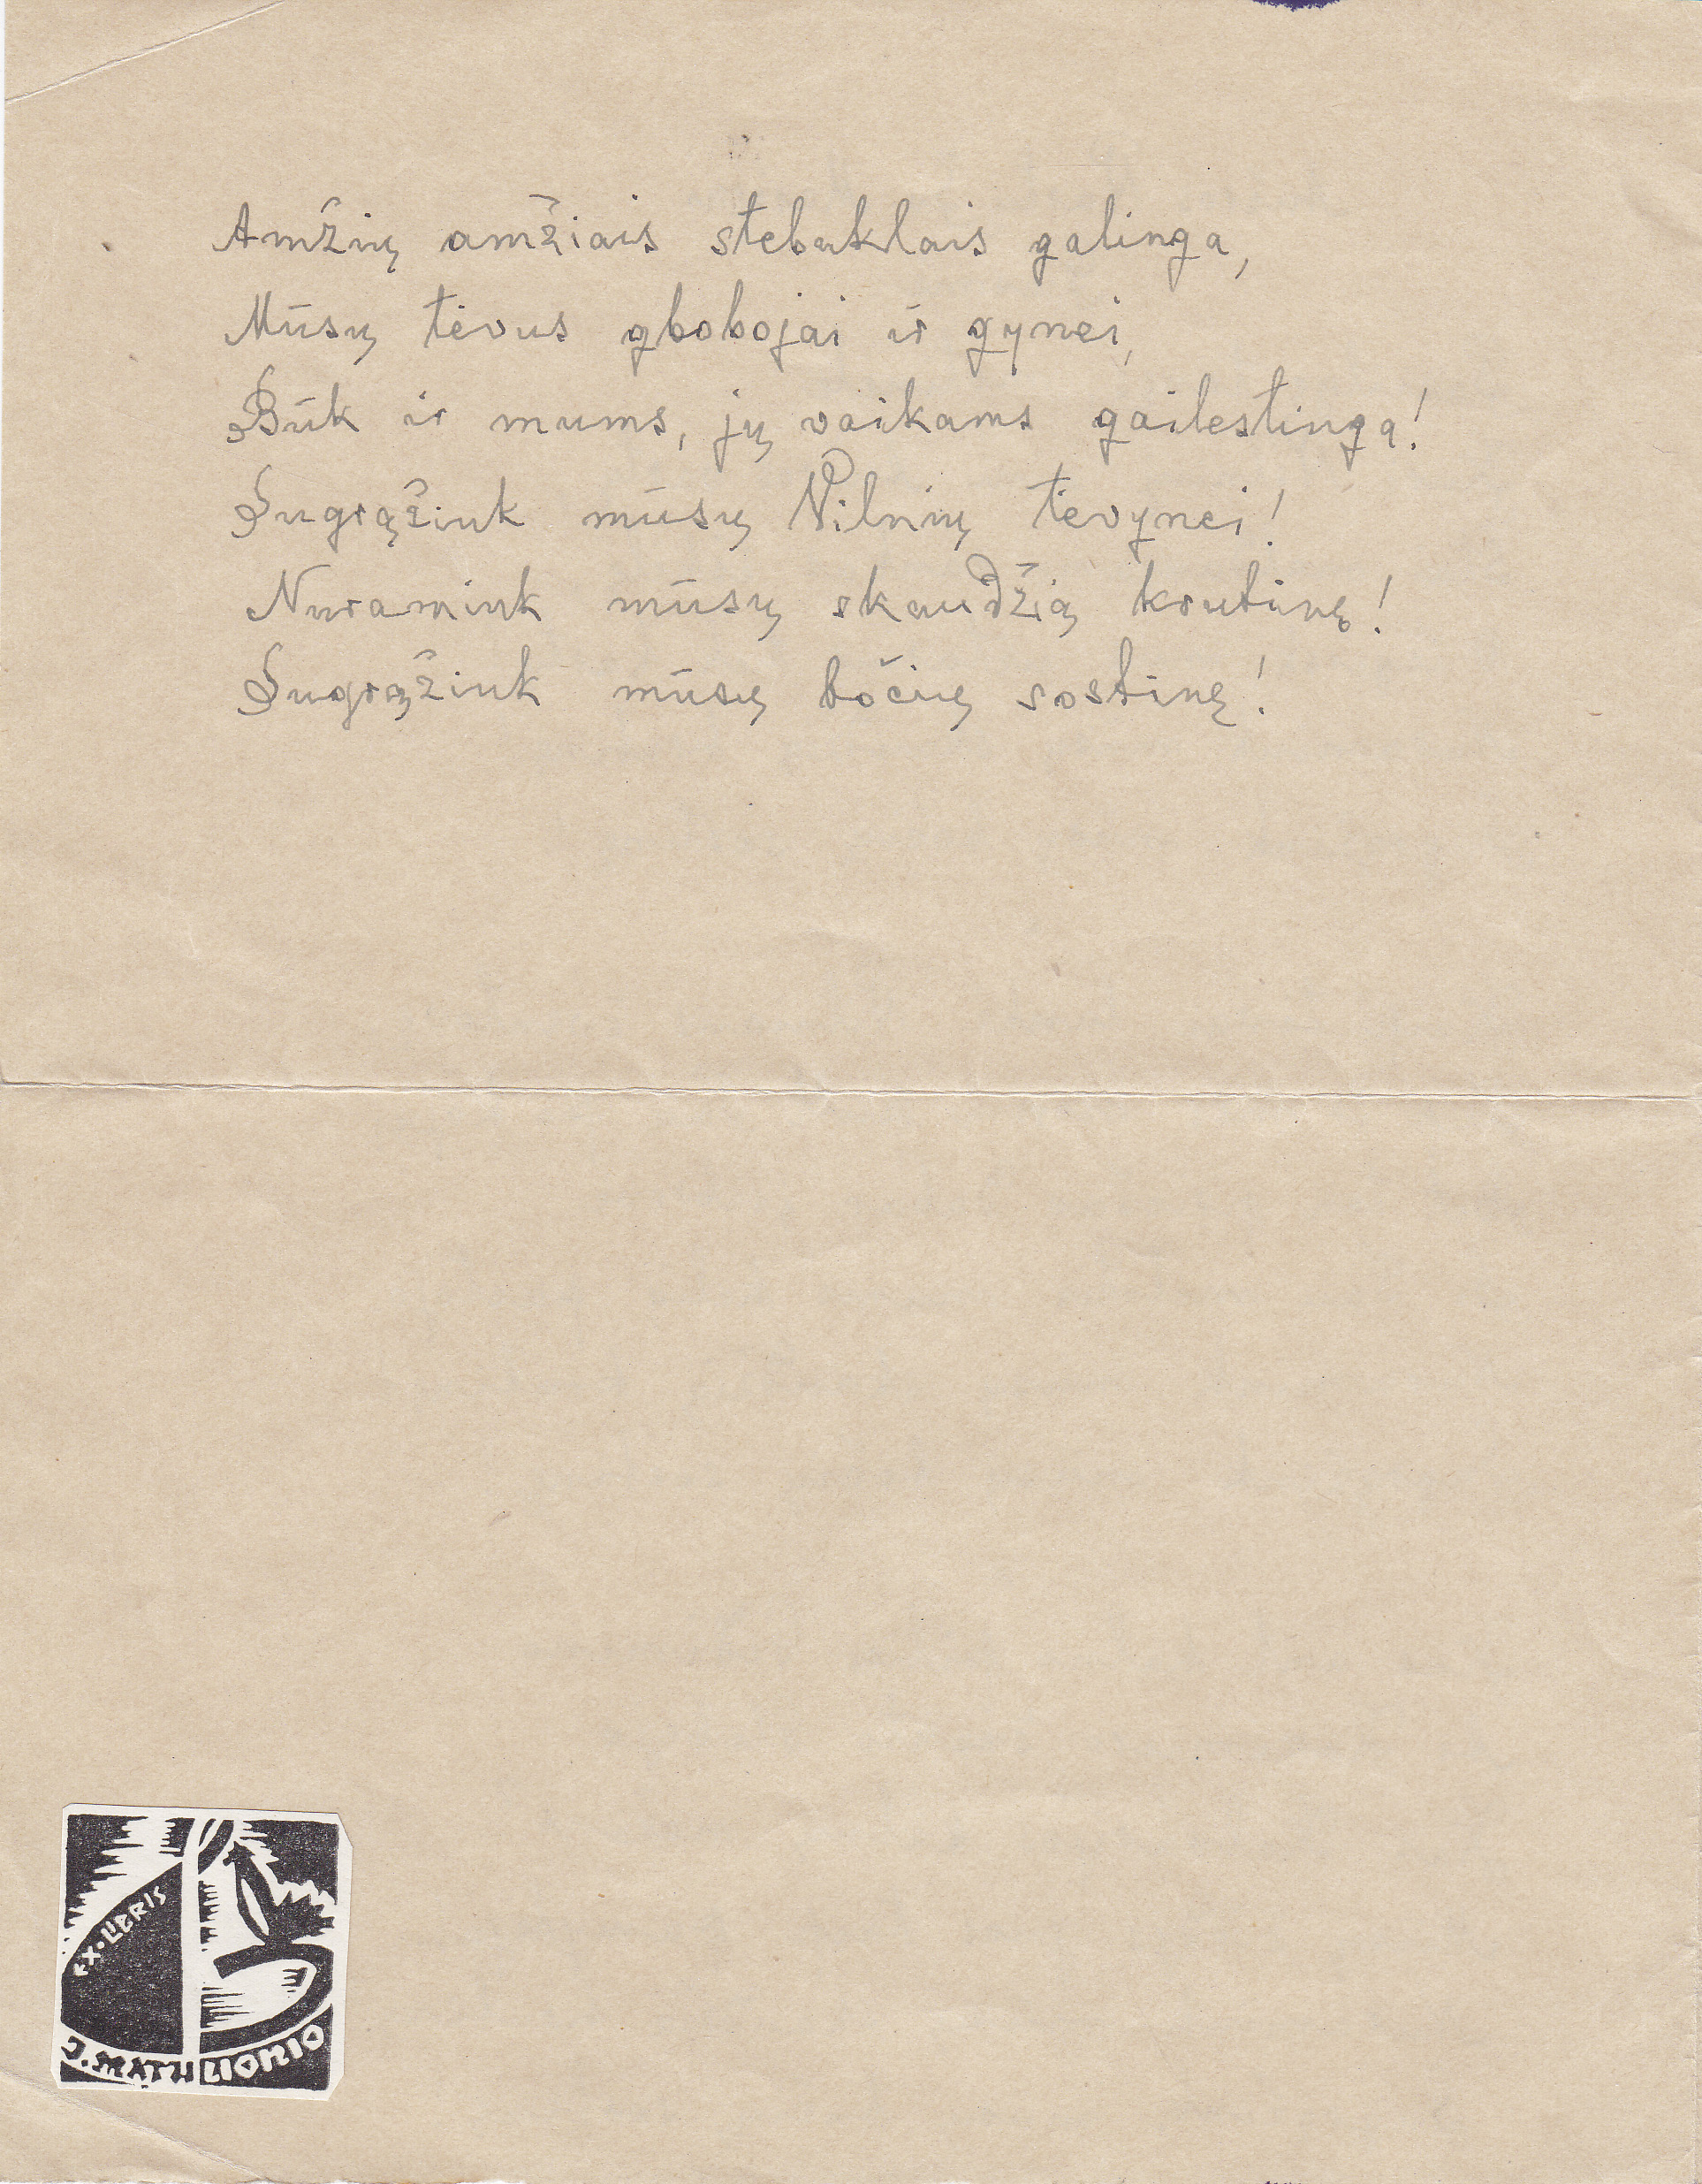 Amžių amžiais stebuklais galinga,
Mūsų tėvus globojai ir gynei,
Būk ir mums, jų vaikams gailestinga!
Sugrąžink mūsų Vilnių tėvynei!
Nuramink mūsų skaudžią krutinę!
Sugrąžink mūsų bočių sostinę!
EX·LIBRIS
LIONIO